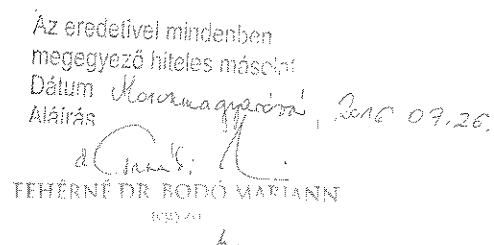 Az eredetivel mindenben
megegyező hiteles másolat
Dátum Mosonmagyaróvár, 2016 07.26.
Aláírás
FEHÉRNÉ DR. BODÓ MARIANN